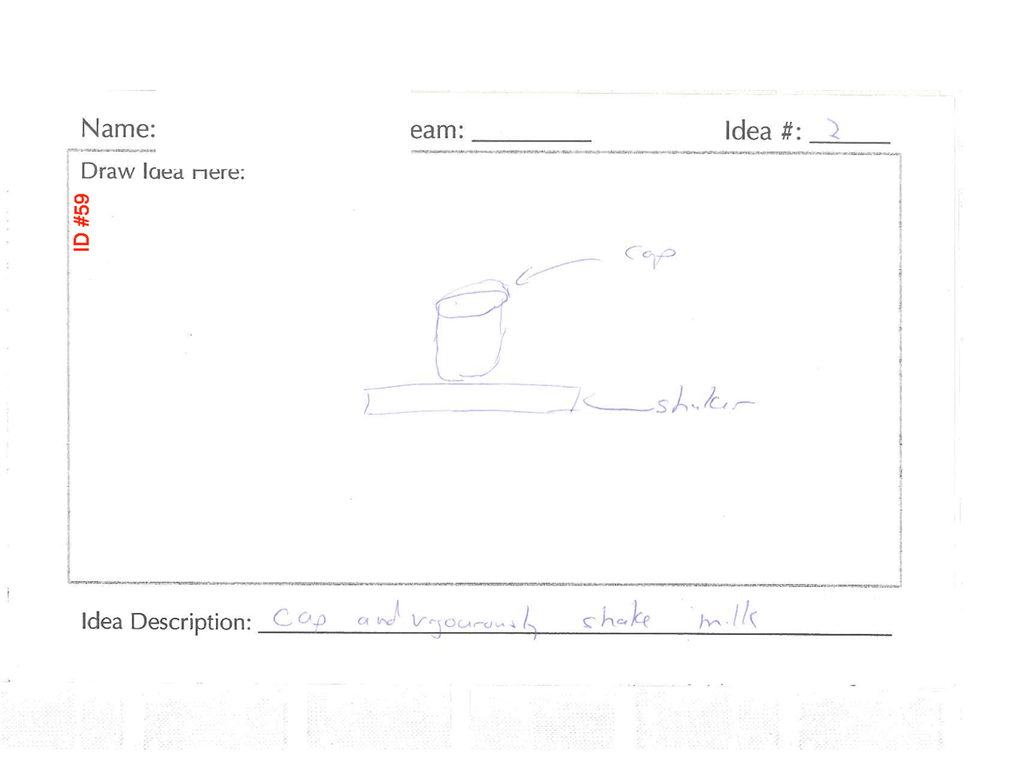 Name: eam: Idea #: 2
Draw Idea Here:
ID #59
cap
shaker
Idea Description: Cap and vigourously shake milk